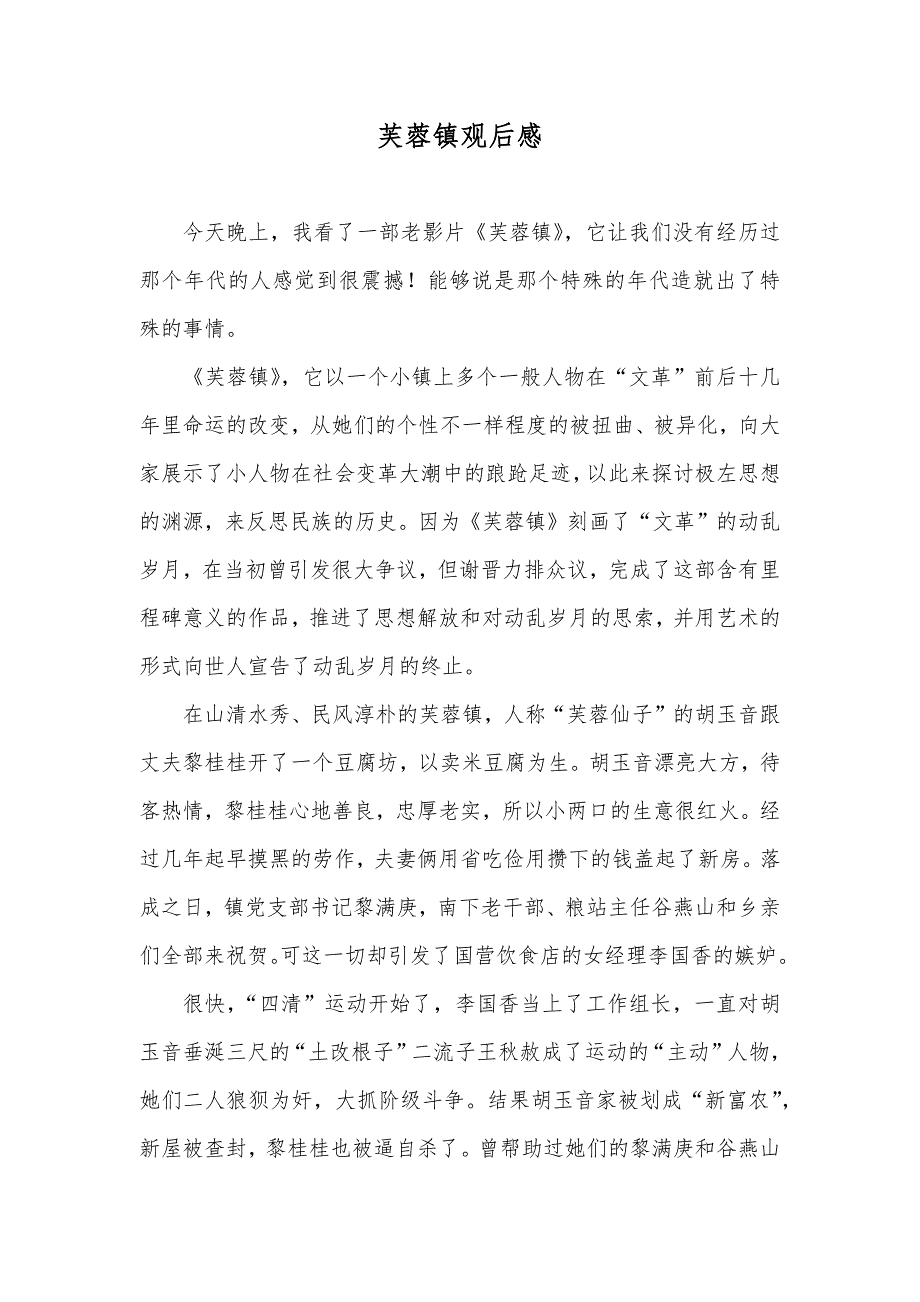 芙蓉镇观后感
今天晚上，我看了一部老影片《芙蓉镇》，它让我们没有经历过
那个年代的人感觉到很震撼！能够说是那个特殊的年代造就出了特
殊的事情。
《芙蓉镇》，它以一个小镇上多个一般人物在“文革”前后十几
年里命运的改变，从她们的个性不一样程度的被扭曲、被异化，向大
家展示了小人物在社会变革大潮中的踉跄足迹，以此来探讨极左思想
的渊源，来反思民族的历史。因为《芙蓉镇》刻画了“文革”的动乱
岁月，在当初曾引发很大争议，但谢晋力排众议，完成了这部含有里
程碑意义的作品，推进了思想解放和对动乱岁月的思索，并用艺术的
形式向世人宣告了动乱岁月的终止。
在山清水秀、民风淳朴的芙蓉镇，人称“芙蓉仙子”的胡玉音跟
丈夫黎桂桂开了一个豆腐坊，以卖米豆腐为生。胡玉音漂亮大方，待
客热情，黎桂桂心地善良，忠厚老实，所以小两口的生意很红火。经
过几年起早摸黑的劳作，夫妻俩用省吃俭用攒下的钱盖起了新房。落
成之日，镇党支部书记黎满庚，南下老干部、粮站主任谷燕山和乡亲
们全部来祝贺。可这一切却引发了国营饮食店的女经理李国香的嫉妒。
很快，“四清”运动开始了，李国香当上了工作组长，一直对胡
玉音垂涎三尺的“土改根子”二流子王秋赦成了运动的“主动”人物，
她们二人狼狈为奸，大抓阶级斗争。结果胡玉音家被划成“新富农”，
新屋被查封，黎桂桂也被逼自杀了。曾帮助过她们的黎满庚和谷燕山